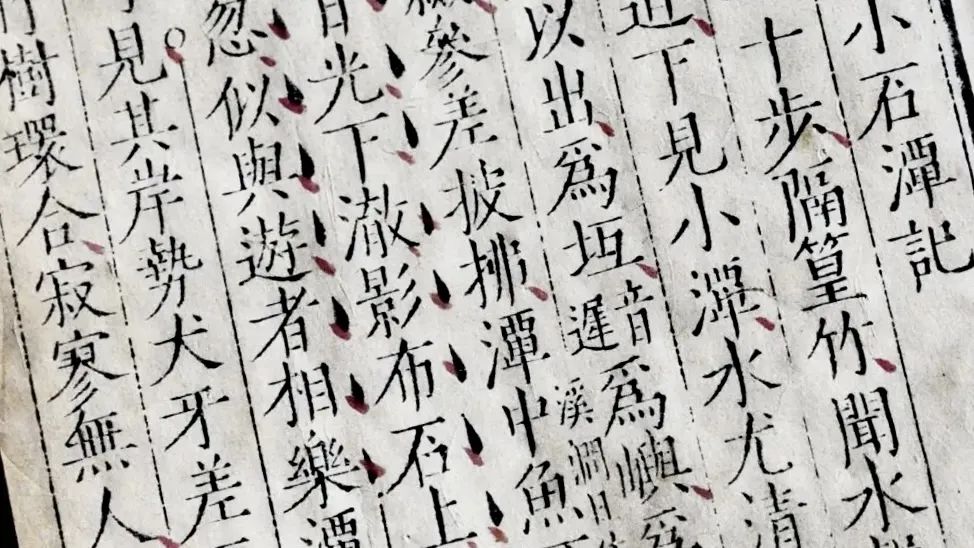 小石潭記
十步隔篁竹聞水
下見小潭水尤清
以出為坻
音遲
為嶼為
溪澗日
參差披拂潭中魚
日光下澈影布石上
忽似與遊者相樂潭
見其岸勢犬牙差
竹樹環合寂寥無人